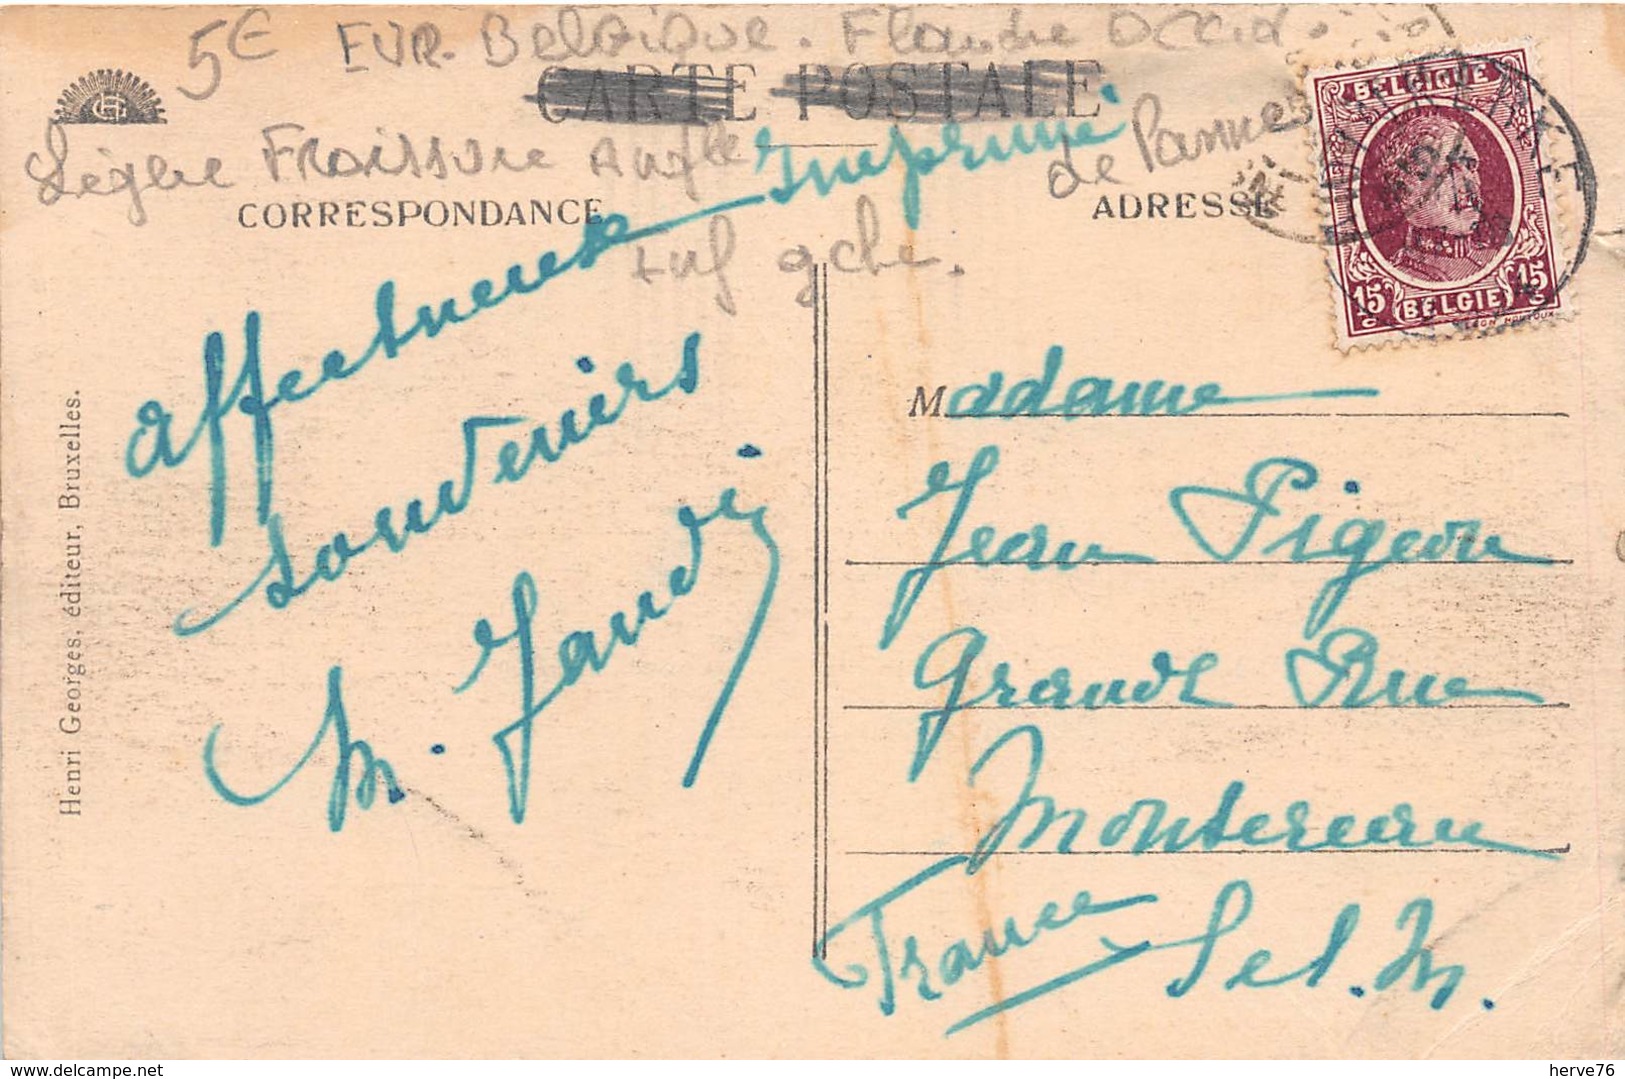 5€ EUR. Belgique. Flandre Occid.
CARTE POSTALE
Légère Froissure Angle
Imprimé
de Pannes
CORRESPONDANCE
ADRESSE
inf gche.
BELGIQUE
15c 15c
BELGIE
Affectueux
souvenirs
M. Jaudi
Madame
Jean Pigeon
Grande Rue
Montereau
France
S et. M.
Henri Georges, éditeur, Bruxelles.
delcampe.net
herve76